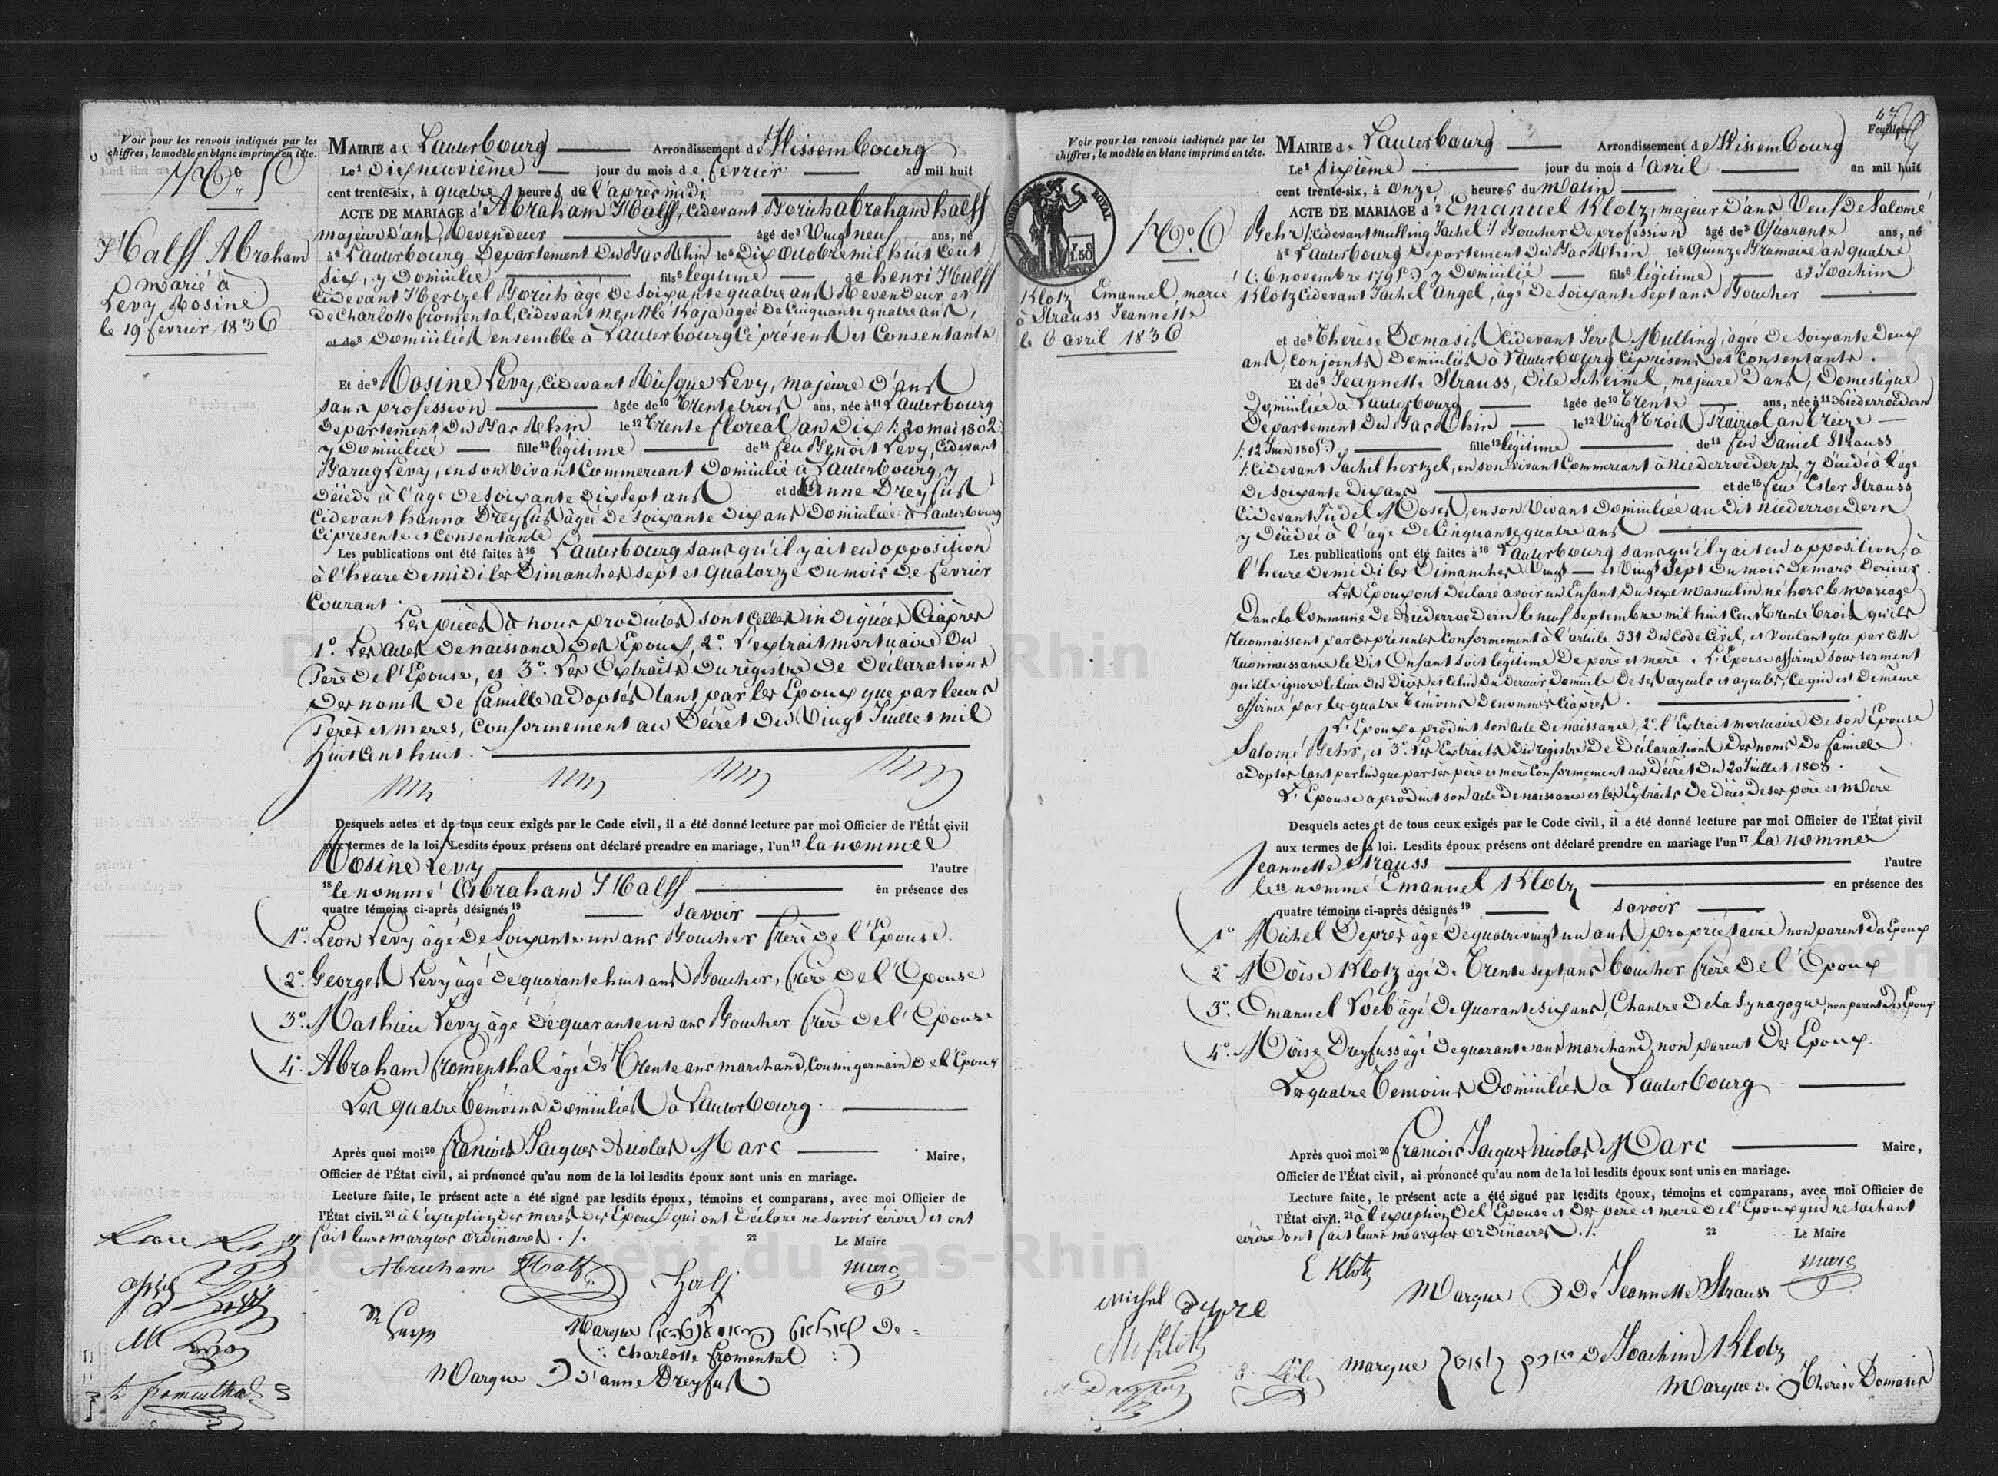 Voir pour les renvois indiqués par les
chiffres, le modèle en blanc imprimé en tête.
N.° 5
Halff Abraham
marié à
Levy Rosine
le 19 février 1836
MAIRIE de Lauterbourg Arrondissement d Wissembourg
Le dixneuvième jour du mois de février an mil huit
cent trente-six, à quatre heures de l'après midi
ACTE DE MARIAGE d'Abraham Halff, cidevant Borich abraham halff
majeur d'ans, Revendeur âgé de Vingt neuf ans, né
à Lauterbourg Departement du Bas Rhin le Dix Octobre mil huit Cent
Six, y Domicilié fils légitime de henri Halff
Cidevant Hertzel Borich âgé de Soixante quatre ans Revendeur et
de Charlotte fromental, Cidevant Kaja âgée de Cinquante quatre ans,
et de Domiciliés ensemble à Lauterbourg Ci présents et Consentants
Et de Rosine Levy, Cidevant Levy, majeure d'ans
sans profession âgée de Trente trois ans, née à Lauterbourg
Departement du Bas Rhin le Trente floreal an Dix /: 20 mai 1802
y Domiciliée fille légitime de feu Benoit Levy, Cidevant
Barug Levy, en son Vivant Commercant Domicilié à Lauterbourg, y
décédé à l'age de Soixante Dix sept ans et de Anne Dreyfus
Cidevant hanna Dreyfus âgée de Soixante dix ans Domiciliée à Lauterbourg
Ci présente et Consentante
Les publications ont été faites à Lauterbourg sans qu'il y ait eu opposition
à l'heure de midi les Dimanches sept et Quatorze du mois de fevrier
Courant.
Les pièces à nous produites sont Celles indiquées Ciaprès
1.° Les actes de naissance des Epoux, 2.° L'extrait mortuaire du
Père de l'Epouse, et 3.° Les Extraits du régistre de Déclarations
des noms de famille adoptés tant par les Epoux que par leurs
Pères et meres, Conformement au Décret du Vingt Juillet mil
huit Cent huit.
Desquels actes et de tous ceux exigés par le Code civil, il a été donné lecture par moi Officier de l'État civil
aux termes de la loi. Lesdits époux présens ont déclaré prendre en mariage, l'un la nommée
Rosine Levy l'autre
le nommé Abraham Halff en présence des
quatre témoins ci-après désignés savoir
1.° Leon Levy âgé de Soixante un ans Boucher frère de l'Epouse.
2.° Georges Levy âgé de quarante huit ans Boucher, frère de l'Epouse
3.° Mathieu Levy âgé de quarante un ans Boucher frère de l'Epouse
4.° Abraham fromenthal âgé de Trente ans marchand, Cousin germain de l'Epoux
Les quatre témoins domiciliés à Lauterbourg.
Après quoi moi francois Jacques Nicolas Marc Maire,
Officier de l'État civil, ai prononcé qu'au nom de la loi lesdits époux sont unis en mariage.
Lecture faite, le présent acte a été signé par lesdits époux, témoins et comparans, avec moi Officier de
l'État civil. à l'exception des meres des Epoux qui ont déclaré ne savoir écrire et ont
fait leurs marques ordinaires ./. Le Maire
Abraham Halff Halff Marc
Marque de
(: Charlotte fromental :)
Marque d'anne Dreyfus
fromenthal
N.° 6
Klotz Emanuel marié
à Strauss Jeannette
le 6 avril 1836
ROYAL
1.50
Feuillet
MAIRIE de Lauterbourg Arrondissement de Wissembourg
Le sixième jour du mois d'avril an mil huit
cent trente-six, à Onze heures du Matin
ACTE DE MARIAGE d'Emanuel Klotz, majeur d'ans Veuf de Salomé
Behr /: Cidevant Mulling Jachel :/ Boucher de profession âgé de Quarante ans, né
à Lauterbourg Departement du Bas Rhin le Quinze Brumaire an quatre
(: 6 novembre 1795 :) y Domicilié fils légitime de Joachim
Klotz Cidevant Jachel Angel, âgé de Soixante Sept ans Boucher
et de Thérèse Domasis Cidevant Mulling, âgée de Soixante Deux
ans, Conjoints Domiciliés à Lauterbourg Ciprésents et Consentants.
Et de Jeannette Strauss, dite Scheinel, majeure d'ans, Domestique
Domiciliée à Lauterbourg âgée de Trente ans, née à Niederroedern
Departement du Bas Rhin le Vingt Trois Prairial an Treize
/: 12 Juin 1805 :/ fille légitime de feu Daniel Strauss
/: Cidevant Jachel hertzel, en son vivant Commercant à Niederroedern, y décédé à l'age
de Soixante Dix ans et de feue Ester Strauss
Cidevant Moses, en son Vivant Domiciliée au dit Niederroedern
y décédée à l'age de Cinquante quatre ans
Les publications ont été faites à Lauterbourg sans qu'il y ait eu opposition, à
l'heure de midi les Dimanches Vingt et Vingt Sept du mois de mars dernier.
Les Epoux ont déclaré avoir un Enfant du Sexe Masculin né hors le mariage
Dans la Commune de Niederroedern le neuf Septembre mil huit Cent Trente Trois qu'ils
reconnaissent par Ces présentes Conformement à l'article 331 du Code Civil, et Voulant que par cette
reconnaissance le dit Enfant soit légitime de père et mère. L'Epouse affirme sous serment
qu'elle ignore le lieu du Décès et celui du dernier Domicile de ses ayeuls et ayeules, Ce qui est de même
affirmé par les quatre Témoins dénommés Ciaprès.
L'Epoux a produit son acte de naissance, 2.° l'Extrait mortuaire de son Epouse
Salomé Behr, et 3.° les Extraits du registre de Déclarations des noms de famille
adoptés tant par lui que par ses père et mère Conformement au décret du 20 Juillet 1808.
L'Epouse a produit son acte de naissance et les Extraits de décès de ses père et mère
Desquels actes et de tous ceux exigés par le Code civil, il a été donné lecture par moi Officier de l'État civil
aux termes de la loi. Lesdits époux présens ont déclaré prendre en mariage l'un la nommée
Jeannette Strauss l'autre
le nommé Emanuel Klotz en présence des
quatre témoins ci-après désignés savoir
1.° Michel Deprès âgé de quatrevingt un ans propriétaire non parent des Epoux
2.° Moïse Klotz âgé de Trente sept ans boucher frère de l'Epoux
3.° Emanuel Loeb âgé de quarante six ans, Chantre de la Synagogue, non parent des Epoux
4.° Moïse Dreyfuss âgé de quarante ans marchand non parent des Epoux.
Les quatre témoins Domiciliés à Lauterbourg
Après quoi moi francois Jacques Nicolas Marc Maire,
Officier de l'État civil, ai prononcé qu'au nom de la loi lesdits époux sont unis en mariage.
Lecture faite, le présent acte a été signé par lesdits époux, témoins et comparans, avec moi Officier de
l'État civil. à l'exception de l'Epouse et des père et mère de l'Epoux qui ne sachant
écrire ont fait leurs marques ordinaires ./. Le Maire
E Klotz Marc
Marque de Jeannette Strauss
Michel
M Klotz
Marque de Joachim Klotz
Marque de Thérèse Domasis